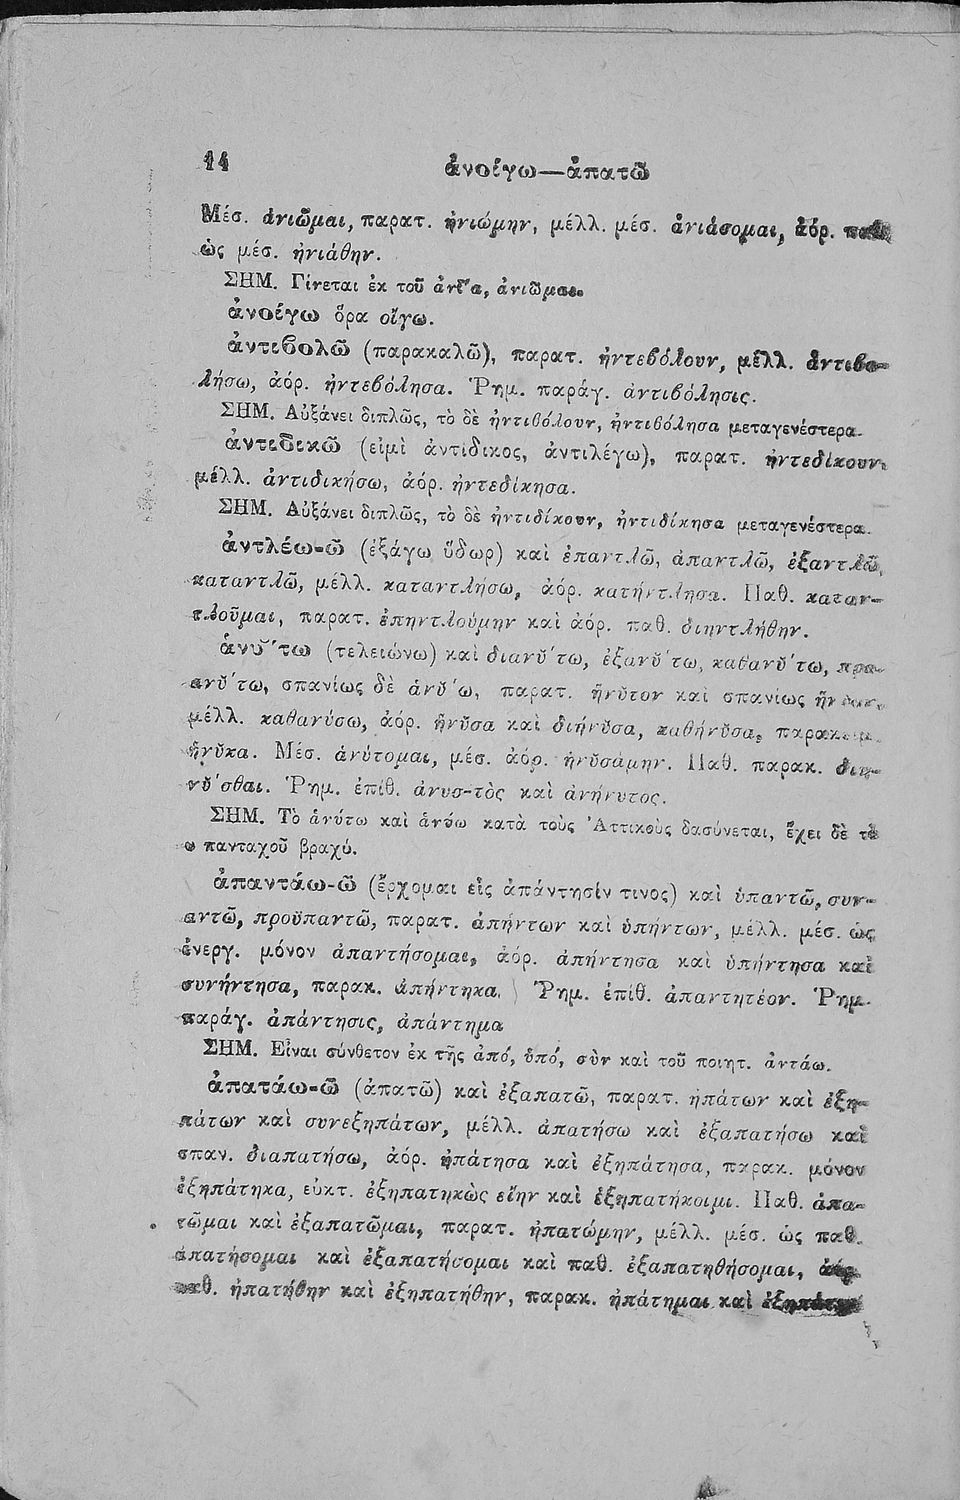 14
ἀνοίγω—ἀπατῶ
Μέσ. ἀνιῶμαι, παρατ. ἠνιώμην, μέλλ. μέσ. ἀνιάσομαι, ἀόρ.
ὡς μέσ. ἠνιάθην.
ΣΗΜ. Γίνεται ἐκ τοῦ ἀνῖα, ἀνιῶμαι.
ἀνοίγω ὅρα οἴγω.
ἀντιβολῶ (παρακαλῶ), παρατ. ἠντεβόλουν, μέλλ. ἀντιβο-
λήσω, ἀόρ. ἠντεβόλησα. Ῥημ. παράγ. ἀντιβόλησις.
ΣΗΜ. Αὐξάνει διπλῶς, τὸ δὲ ἠντιβόλουν, ἠντιβόλησα μεταγενέστερα.
ἀντιδικῶ (εἰμὶ ἀντίδικος, ἀντιλέγω), παρατ. ἠντεδίκουν,
μέλλ. ἀντιδικήσω, ἀόρ. ἠντεδίκησα.
ΣΗΜ. Αὐξάνει διπλῶς, τὸ δὲ ἠντιδίκουν, ἠντιδίκησα μεταγενέστερα.
ἀντλέω-ῶ (ἐξάγω ὕδωρ) καὶ ἐπαντλῶ, ἀπαντλῶ, ἐξαντλῶ,
καταντλῶ, μέλλ. καταντλήσω, ἀόρ. κατήντλησα. Παθ. καταν-
τλοῦμαι, παρατ. ἐπηντλούμην καὶ ἀόρ. παθ. διηντλήθην.
ἀνῠ́τω (τελειώνω) καὶ διανῠ́τω, ἐξανῠ́τω, καθανῠ́τω, προ-
ανῠ́τω, σπανίως δὲ ἀνῠ́ω, παρατ. ἤνῠτον καὶ σπανίως
μέλλ. καθανύσω, ἀόρ. ἤνῠσα καὶ διήνῠσα, καθήνῠσα, παρακειμ.
ἤνῠκα. Μέσ. ἀνύτομαι, μέσ. ἀόρ. ἠνῠσάμην. Παθ. παρακ. διη-
νῠ́σθαι. Ῥημ. ἐπίθ. ἀνυσ-τὸς καὶ ἀνήνυτος.
ΣΗΜ. Τὸ ἀνύτω καὶ ἀνύω κατὰ τοὺς Ἀττικοὺς δασύνεται, ἔχει δὲ τὸ
υ πανταχοῦ βραχύ.
ἀπαντάω-ῶ (ἔρχομαι εἰς ἀπάντησίν τινος) καὶ ὑπαντῶ, συν-
αντῶ, προϋπαντῶ, παρατ. ἀπήντων καὶ ὑπήντων, μέλλ. μέσ. ὡς
ἐνεργ. μόνον ἀπαντήσομαι, ἀόρ. ἀπήντησα καὶ ὑπήντησα καὶ
συνήντησα, παρακ. ἀπήντηκα. Ῥημ. ἐπίθ. ἀπαντητέον. Ῥημ.
παράγ. ἀπάντησις, ἀπάντημα
ΣΗΜ. Εἶναι σύνθετον ἐκ τῆς ἀπό, ὑπό, σὺν καὶ τοῦ ποιητ. ἀντάω.
ἀπατάω-ῶ (ἀπατῶ) καὶ ἐξαπατῶ, παρατ. ἠπάτων καὶ ἐξη-
πάτων καὶ συνεξηπάτων, μέλλ. ἀπατήσω καὶ ἐξαπατήσω καὶ
σπαν. διαπατήσω, ἀόρ. ἠπάτησα καὶ ἐξηπάτησα, παρακ. μόνον
ἐξηπάτηκα, εὐκτ. ἐξηπατηκὼς εἴην καὶ ἐξηπατήκοιμι. Παθ. ἀπα-
τῶμαι καὶ ἐξαπατῶμαι, παρατ. ἠπατώμην, μέλλ. μέσ. ὡς παθ.
ἀπατήσομαι καὶ ἐξαπατήσομαι καὶ παθ. ἐξαπατηθήσομαι, ἀόρ.
παθ. ἠπατήθην καὶ ἐξηπατήθην, παρακ. ἠπάτημαι καὶ